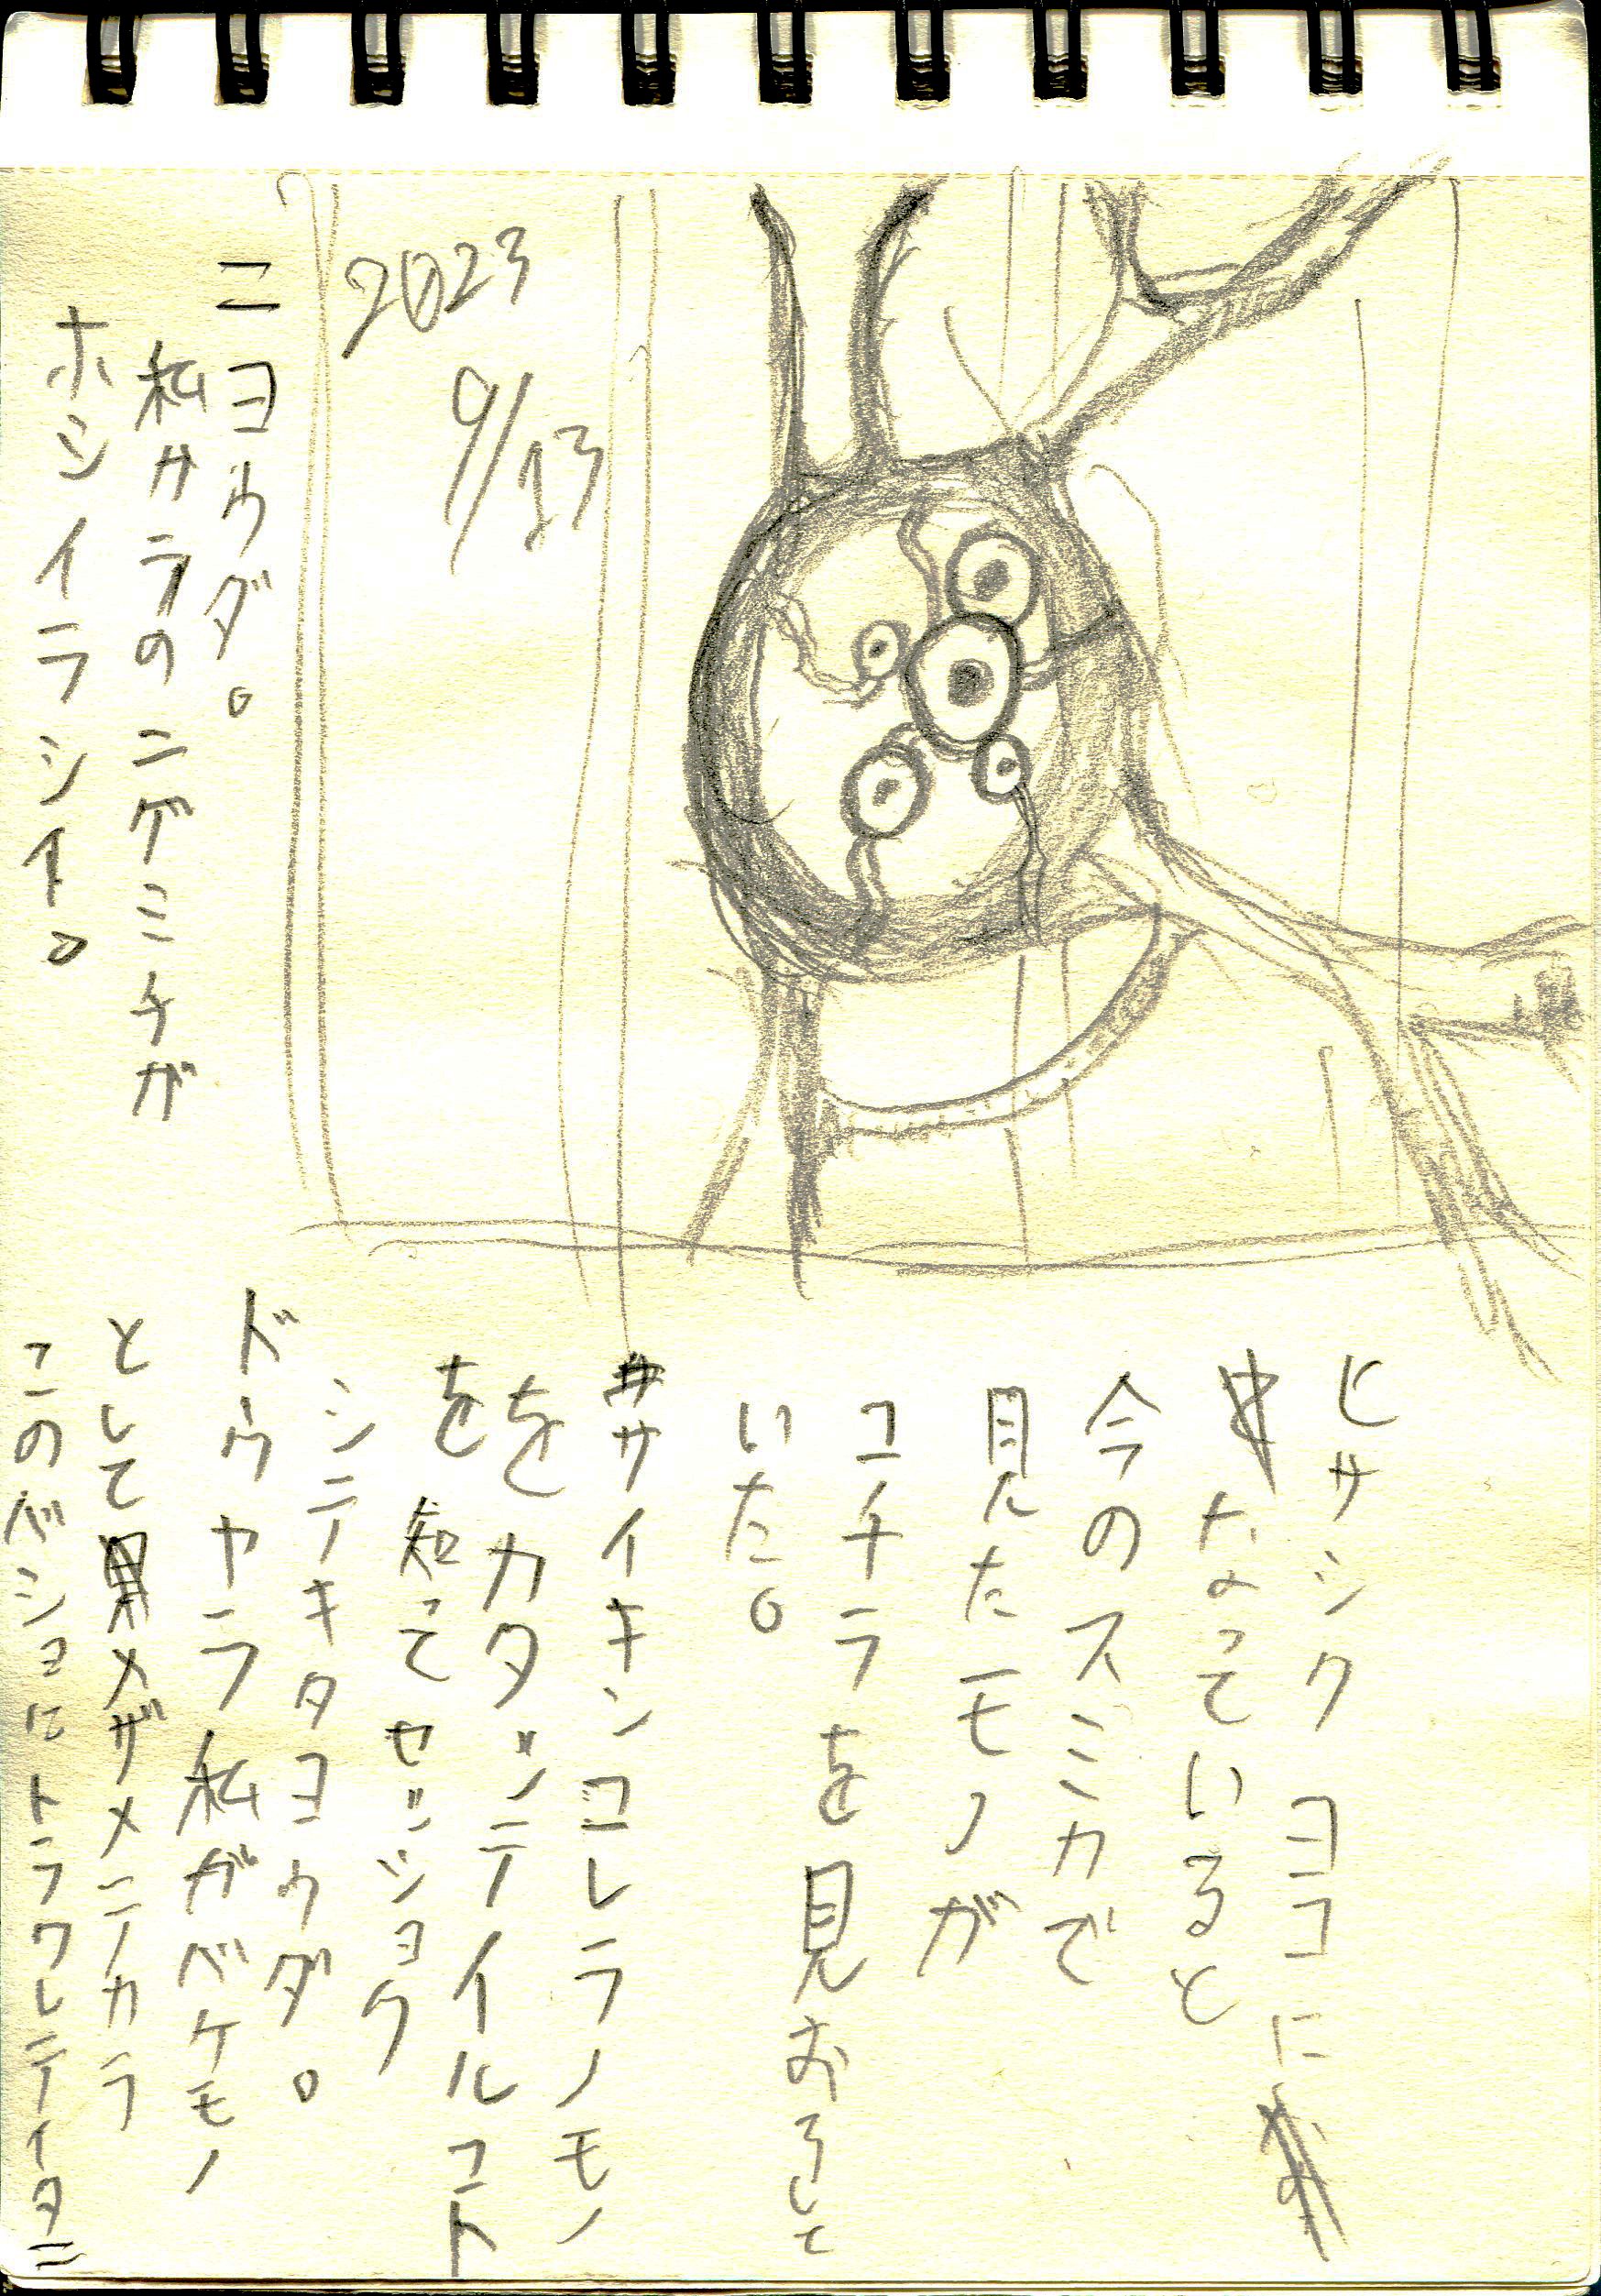 2023
9/13
ヒサシク ヨコに
なっていると
今のスミカで
見たモノが
コチラを見おろして
いた。
サイキンコレラノモノ
をカタッテイルコト
を知ってセッショク
シテキタヨウダ。
ドウヤラ私がバケモノ
として メザメテカラ
このバショにトラワレテイタ=
=ヨウダ。
私サラのニゲミチが
ホシイラシイ。